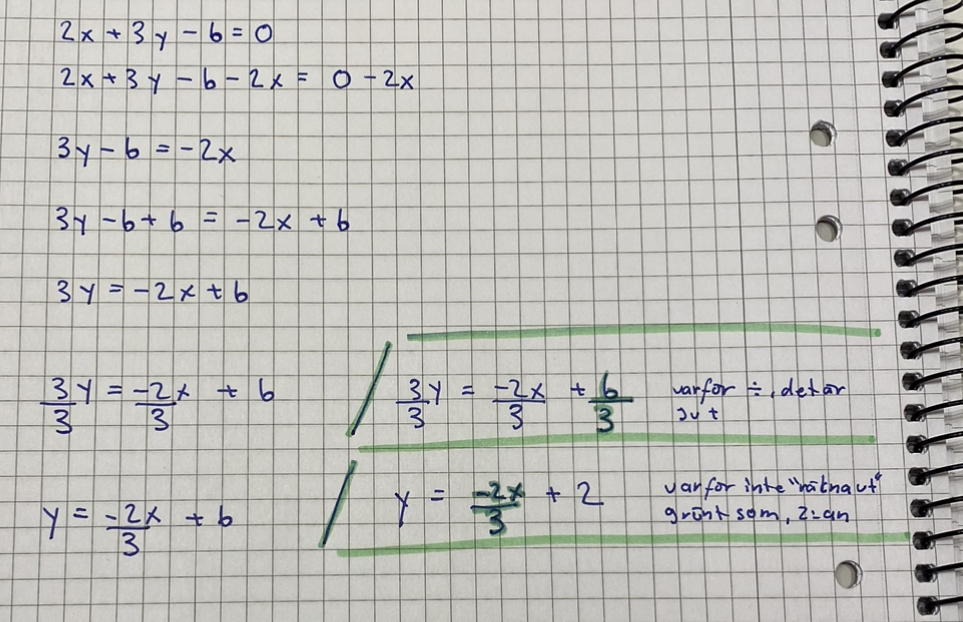 2x + 3y - 6 = 0
2x + 3y - 6 - 2x = 0 - 2x
3y - 6 = -2x
3y - 6 + 6 = -2x + 6
3y = -2x + 6
3/3 y = -2x/3 + 6 / 3/3 y = -2x/3 + 6/3 varför ÷, det är
y = -2x/3 + 6 / y = -2x/3 + 2 varför inte "räkna ut"
grönt som, 2:an